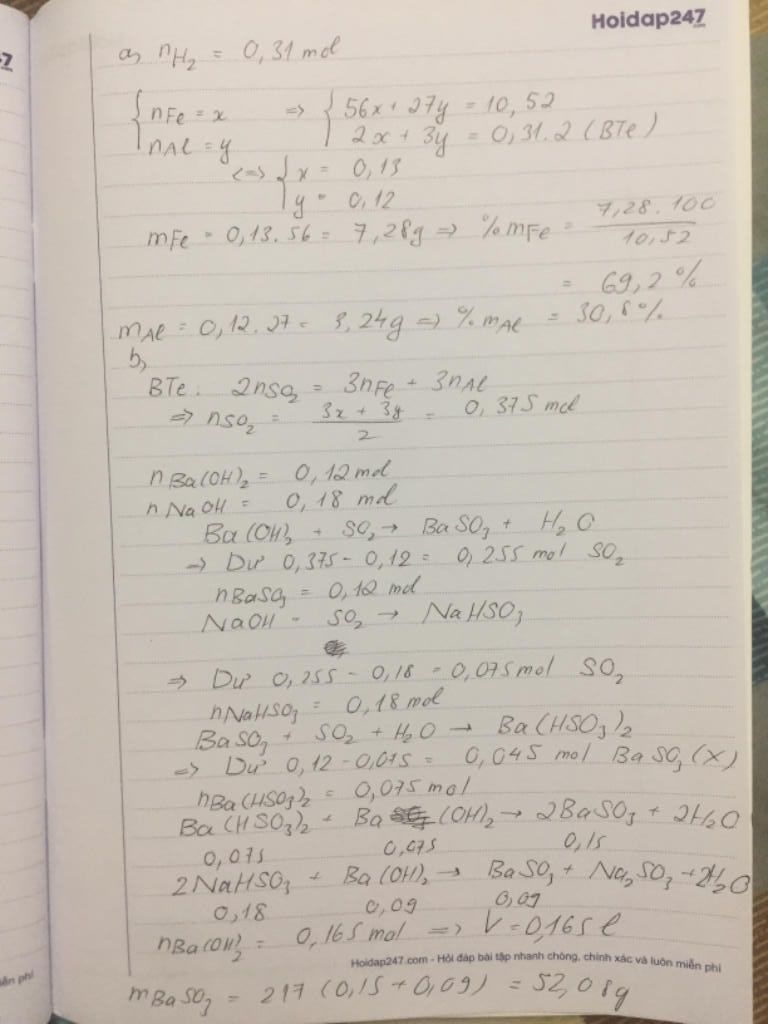 Hoidap247
.com
a, nH₂ = 0,31 mol
{ nFe = x => { 56x + 27y = 10,52
nAl = y 2x + 3y = 0,31.2 (BTe)
<=> { x = 0,13
y = 0,12
mFe = 0,13.56 = 7,28g => %mFe = 7,28.100 / 10,52
= 69,2%
mAl = 0,12.27 = 3,24g => %mAl = 30,8%
b,
BTe: 2nSO₂ = 3nFe + 3nAl
=> nSO₂ = 3x + 3y / 2 = 0,375 mol
nBa(OH)₂ = 0,12 mol
nNaOH = 0,18 mol
Ba(OH)₂ + SO₂ → BaSO₃ + H₂O
=> Dư 0,375 - 0,12 = 0,255 mol SO₂
nBaSO₃ = 0,12 mol
NaOH - SO₂ → NaHSO₃
=> Dư 0,255 - 0,18 = 0,075 mol SO₂
nNaHSO₃ = 0,18 mol
BaSO₃ + SO₂ + H₂O → Ba(HSO₃)₂
=> Dư 0,12 - 0,075 = 0,045 mol BaSO₃ (X)
nBa(HSO₃)₂ = 0,075 mol
Ba(HSO₃)₂ + Ba(OH)₂ → 2BaSO₃ + 2H₂O
0,075 0,075 0,15
2NaHSO₃ + Ba(OH)₂ → BaSO₃ + Na₂SO₃ + 2H₂O
0,18 0,09 0,09
nBa(OH)₂ = 0,165 mol => V = 0,165 l
Hoidap247.com - Hỏi đáp bài tập nhanh chóng, chính xác và luôn miễn phí
mBaSO₃ = 217 (0,15 + 0,09) = 52,08g